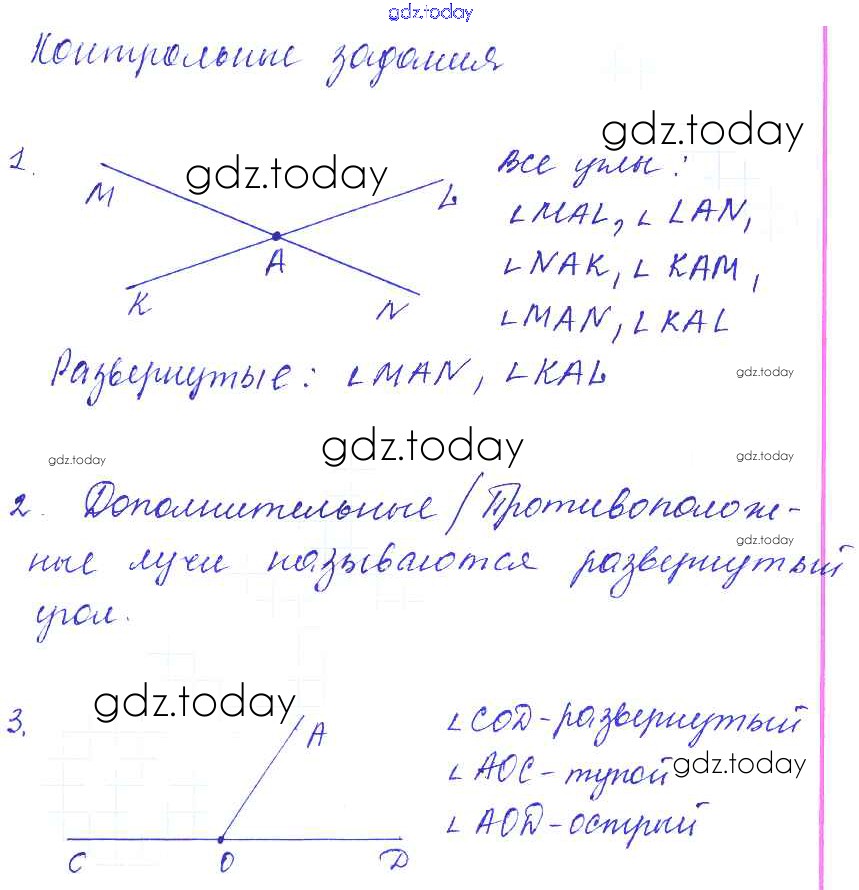 gdz.today
Контрольные задания
gdz.today
1.
gdz.today
Все углы:
M
L
∠MAL, ∠LAN,
A
∠NAK, ∠KAM,
K
N
∠MAN, ∠KAL
Развернутые: ∠MAN, ∠KAL
gdz.today
gdz.today
gdz.today
gdz.today
2. Дополнительные / Противополож-
gdz.today
ные лучи называются развернутый
угол.
3.
gdz.today
A
∠COD-развернутый
∠AOC-тупой
gdz.today
∠AOD-острый
C
O
D